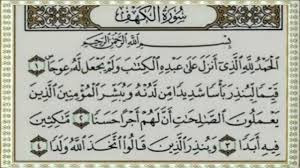 سُورَةُ الْكَهْفِ
بِسْمِ اللَّهِ الرَّحْمَٰنِ الرَّحِيمِ
الْحَمْدُ لِلَّهِ الَّذِي أَنزَلَ عَلَىٰ عَبْدِهِ الْكِتَٰبَ وَلَمْ يَجْعَل لَّهُ عِوَجًا ١
قَيِّمًا لِّيُنذِرَ بَأْسًا شَدِيدًا مِّن لَّدُنْهُ وَيُبَشِّرَ الْمُؤْمِنِينَ الَّذِينَ
يَعْمَلُونَ الصَّٰلِحَٰتِ أَنَّ لَهُمْ أَجْرًا حَسَنًا ٢ مَّٰكِثِينَ
فِيهِ أَبَدًا ٣ وَيُنذِرَ الَّذِينَ قَالُوا اتَّخَذَ اللَّهُ وَلَدًا ٤